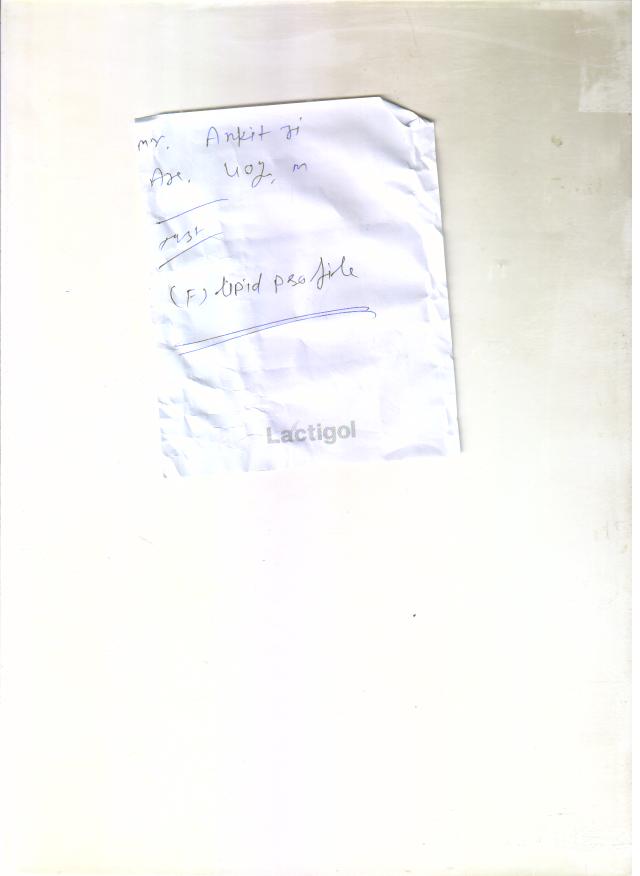 mr. Ankit ji
Age. 40y, m
Test
(F) lipid profile
Lactigol